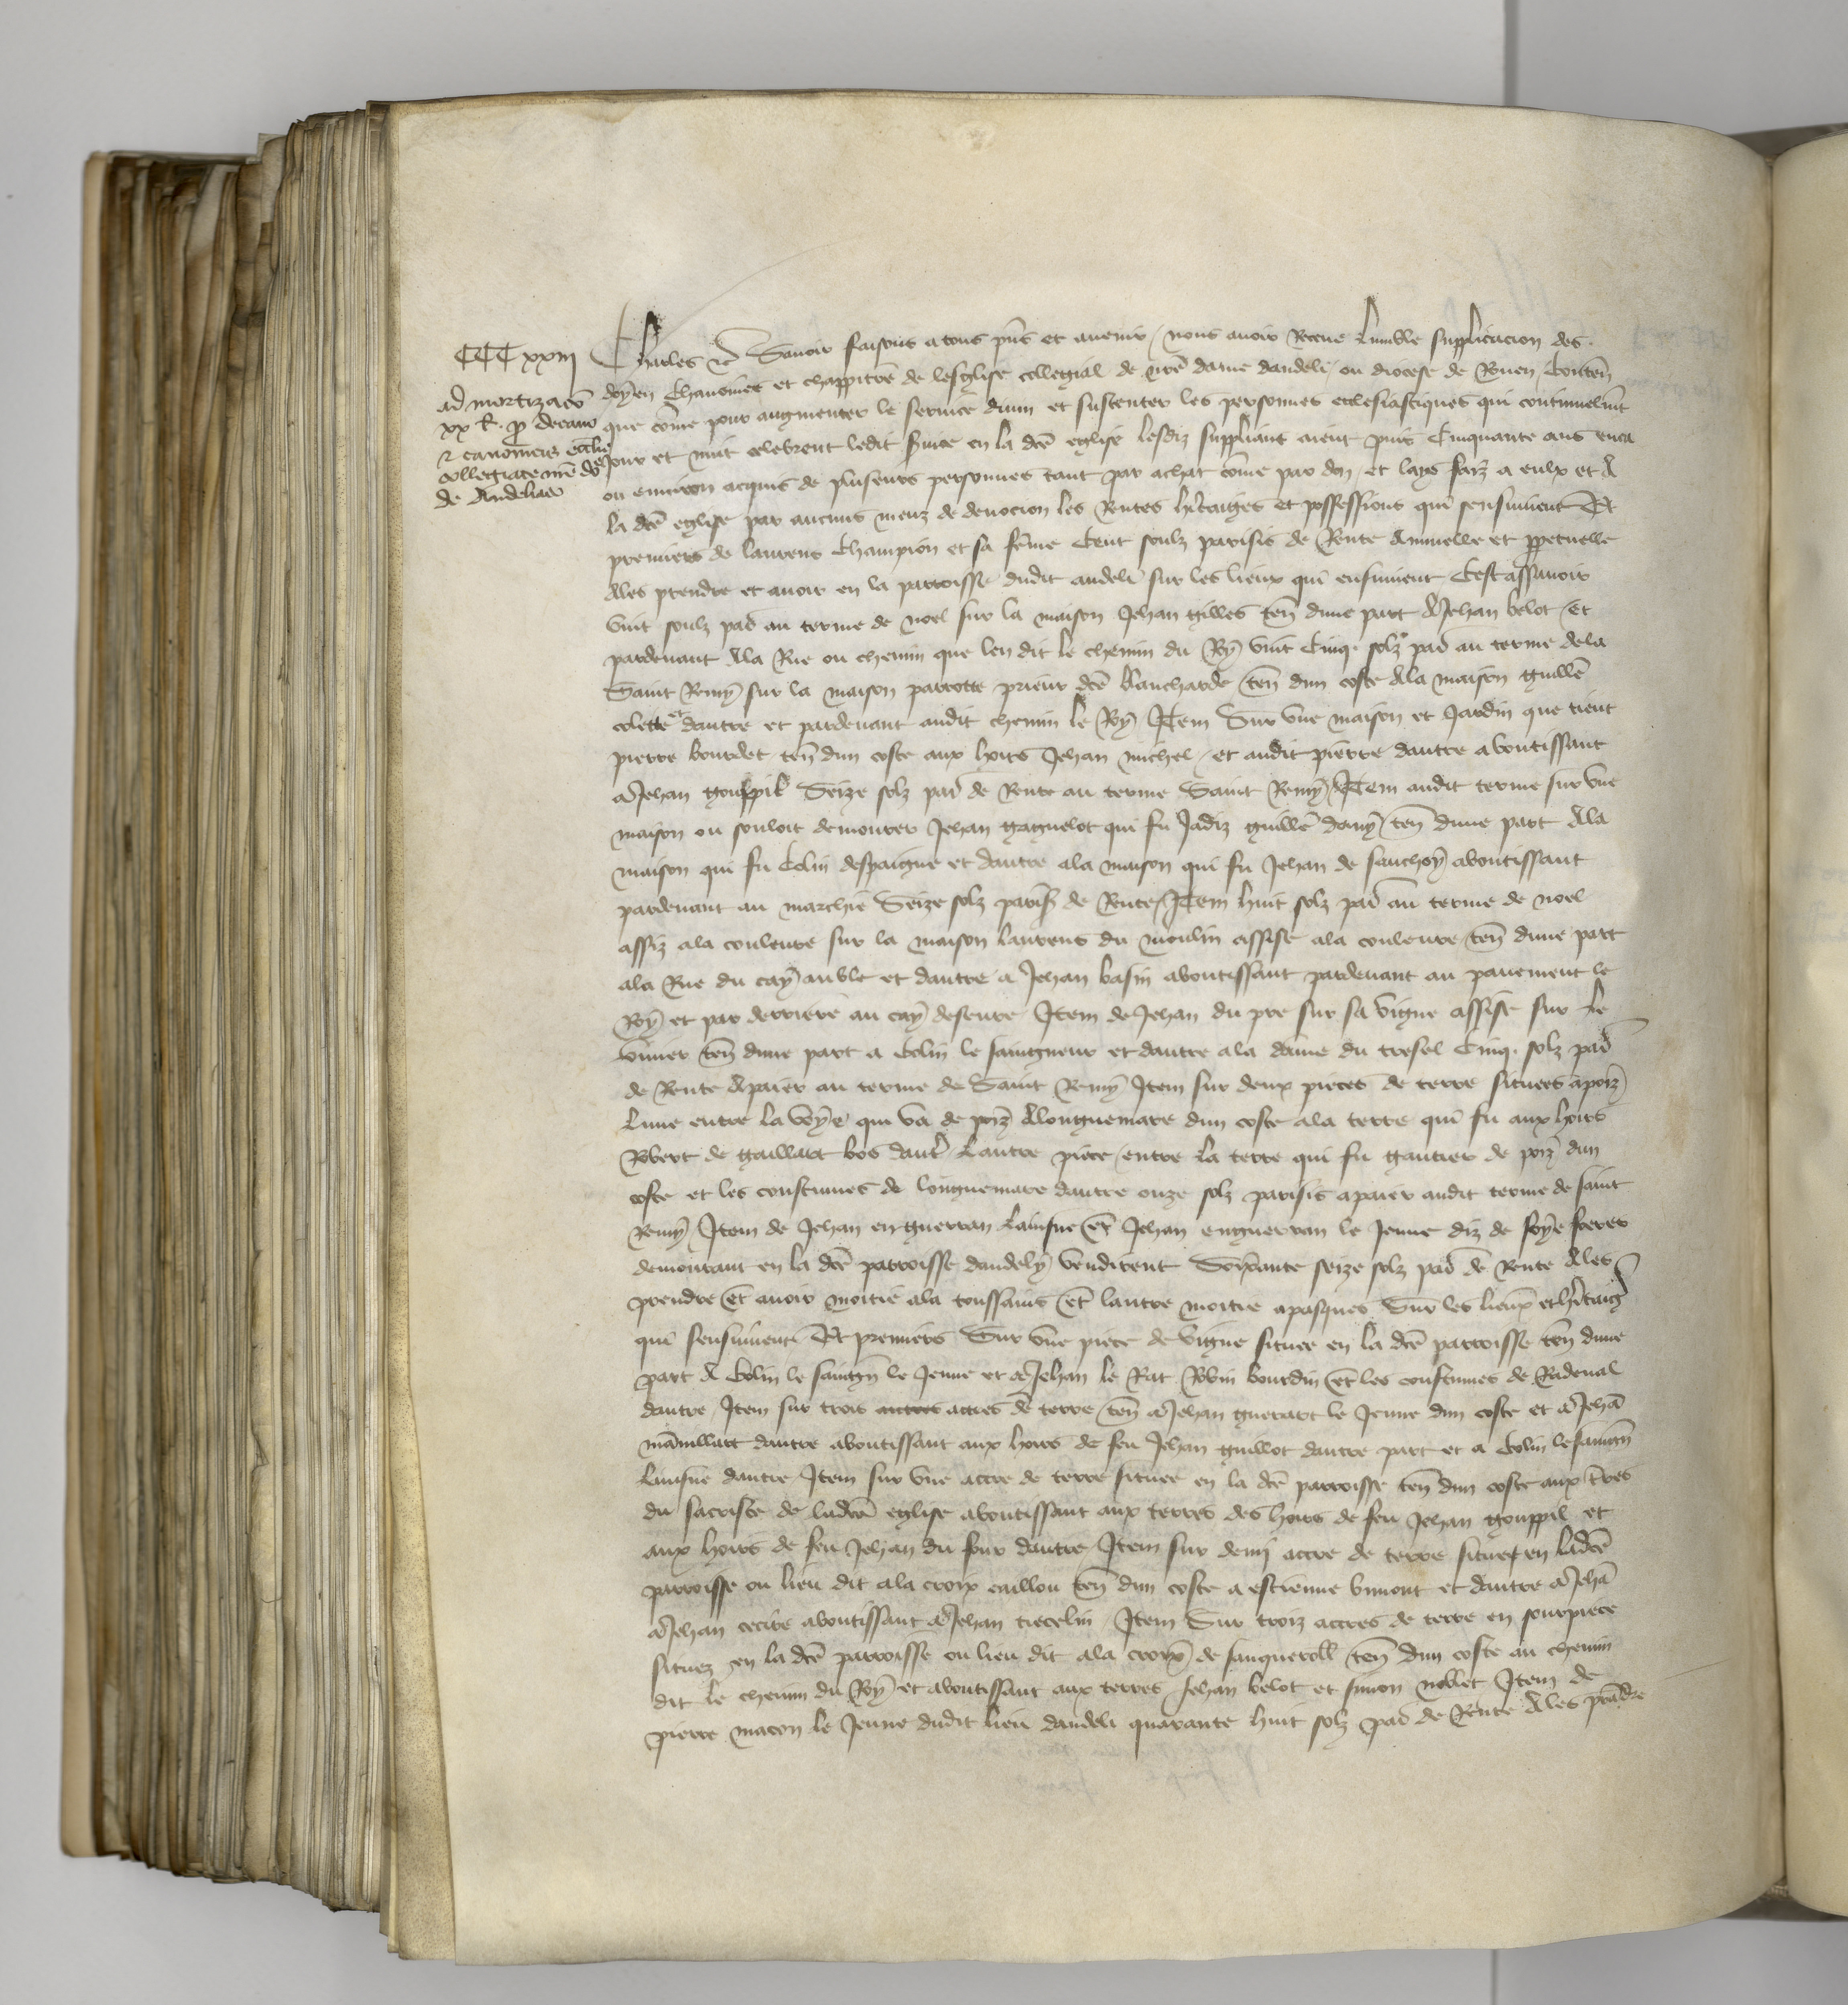 CCCxxiii
admortizacio
xx l. p decano
et canonicis ecclie
collegiate nre dne
de Andeliaco
Charles etc Savoir faisons a tous pns et avenir / nous avoir Receue lumble supplicacion des
doyen Chanoines et chappitre de lesglise collegial de nre dame dandeli ou diocese de Rouen Conten
que come pour augmenter le service divin et sustenter les personnes ecclesiastiques qui continuelmt
Jour et nuit celebrent ledit svice en la dce eglise lesdiz suppliant aient puis Cinquante ans enca
ou environ acquis de pluseurs personnes tant par achat come par don et lays faiz a eulx et A
la dce eglise par aucuns meuz de devocion les Rentes hitaiges et possessions qui sensuivent Et
premiers de laurens Champion et sa feme Cent soulz parisis de Rente Annuelle et ppetuelle
Ales prendre et avoir en la parroisse dudit andeli sur les lieux qui ensuivent Cest assavoir
vint soulz par au terme de noel sur la maison Jehan gilles ten dune part A Jehan belot et
pardevant Ala Rue ou chemin que len dit le chemin du Roy vint Cinq solz par au terme dela
Saint Remy sur la maison parrotte prieur dce blancharde ten dun coste Ala maison guille
colette et dautre et pardevant audit chemin le Roy Item Sur une maison et Jardin que tient
pierre bourdet ten dun coste aux hoirs Jehan michel / et audit pierre dautre aboutissant
a Jehan gouppil Seize solz par de Rente au terme Saint Remy / Item audit terme sur une
maison ou souloit demourer Jehan gaguelot qui fu Jadiz guille damy / ten dune part Ala
maison qui fu Colin despaigne et dautre ala maison qui fu Jehan de sauchoy aboutissant
pardevant au marchie Seize solz paris de Rente / Item huit solz par au terme de noel
assiz ala couleure sur la maison laurens du moulin assise ala couleure ten dune part
ala Rue du cay auble et dautre a Jehan basin aboutissant pardevant au pavement le
Roy et par derriere au cay deseure Item de Jehan du pre sur sa vigne assise sur le
vivier ten dune part a Colin le saingneur et dautre ala dame du tresel Cinq solz par
de Rente Apaier au terme de Saint Remy Item sur deux pieces de terre situees a poiz
Lune entre la voye qui va de poiz Alonguemare dun coste ala terre qui fu aux hoirs
Robert de gaillart bos daut Lautre piece / entre la terre qui fu gautier de poiz dun
coste et les coustumes de longuemare dautre onze solz parisis apaier audit terme de saint
Remy Item de Jehan enguerran lainsne et Jehan enguerran le Jeune diz de foye freres
demourant en la dce parroisse dandely vendirent Soixante seize solz par de Rente Ales
prendre et avoir moitie ala toussains et lautre moitie apasques Sur les lieux et hitaig
qui sensuivent Et premiers Sur une piece de vigne situee en la dce parroisse ten dune
part A Colin le saingn le Jeune et a Jehan le Rat Robin bourdin et les coustumes de Radeval
dautre / Item sur trois acres de terre ten a Jehan guerart le Jeune dun coste et a Jeha
manillart dautre aboutissant aux hoirs de feu Jehan guillot dautre part et a Colin le saingn
lainsne dautre Item sur une acre de terre situee en la dce parroisse ten dun coste aux tres
du sacriste de ladce eglise aboutissant aux terres des hoirs de feu Jehan gouppil et
aux hoirs de feu Jehan du four dautre Item sur demi acre de terre situee en ladce
parroisse ou lieu dit ala croix caillou ten dun coste a estienne vimont et dautre a Jeha
a Jehan cecire aboutissant a Jehan tiecelin Item Sur troiz acres de terre en pieces
situez en la dce parroisse ou lieu dit ala croix de ten dun coste au chemin
dit le chemin du Roy et aboutissant aux terres Jehan belot et simon noblet Item de
pierre macon le Jeune dudit lieu dandeli quarante huit solz par de Rente Ales prendre